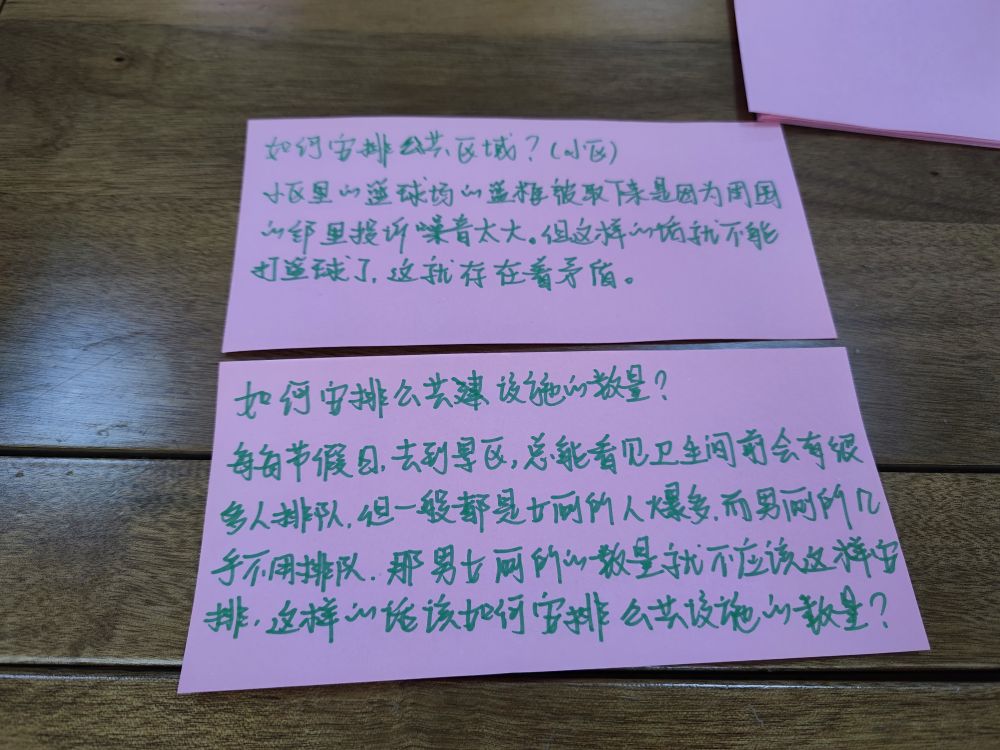 如何安排公共区域？(小区)
小区里的篮球场的篮框被取下来是因为周围
的邻里投诉噪音太大。但这样的话就不能
打篮球了，这就存在着矛盾。
如何安排公共建设施的数量？
每每节假日，去到景区，总能看见卫生间前会有很
多人排队，但一般都是女厕所人爆多，而男厕所几
乎不用排队，那男女厕所的数量就不应该这样安
排，这样的话该如何安排公共设施的数量？